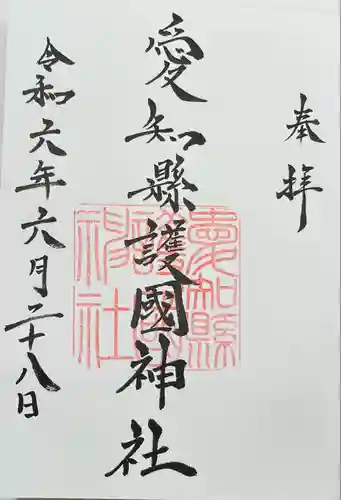 奉拝
愛知縣護國神社
愛知縣護國神社
令和六年六月二十八日